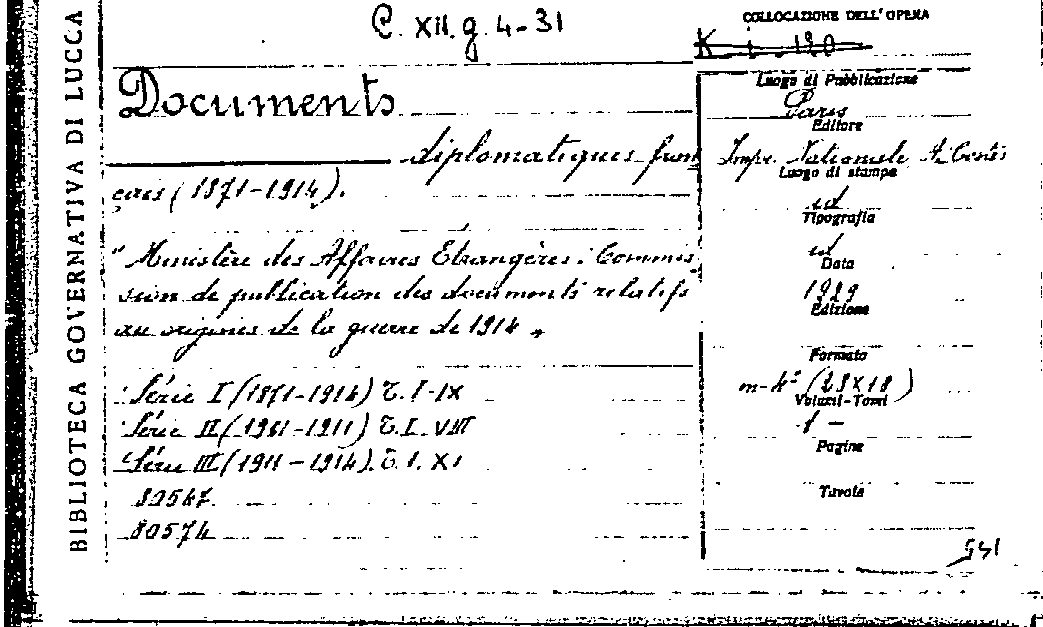 BIBLIOTECA GOVERNATIVA DI LUCCA
C. XII. g. 4-31
COLLOCAZIONE DELL'OPERA
K i 120
Documents
diplomatiques fran
çais (1871-1914).
"Ministère des Affaires Etrangères: Commis
sion de publication des documents relatifs
au origines de la guerre de 1914"
Série I (1871-1914) T. I-IX
Série II (1901-1911) T. I. VIII
Série III (1911-1914). T. I. XI
80547
80574
Luogo di Pubblicazione
Paris
Editore
Impr. Nationale A. Costes
Luogo di stampa
id
Tipografia
id
Data
1929
Edizione
Formato
m-4° (28x18)
Volumi-Tomi
1 -
Pagine
Tavole